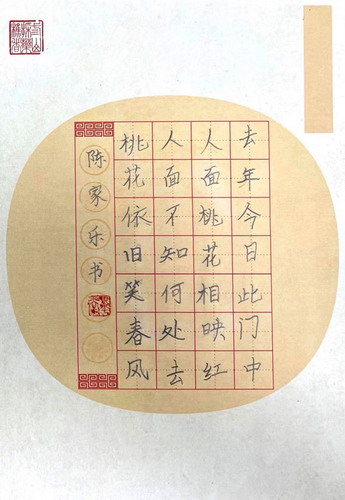 去年今日此门中
人面桃花相映红
人面不知何处去
桃花依旧笑春风
陈家乐书